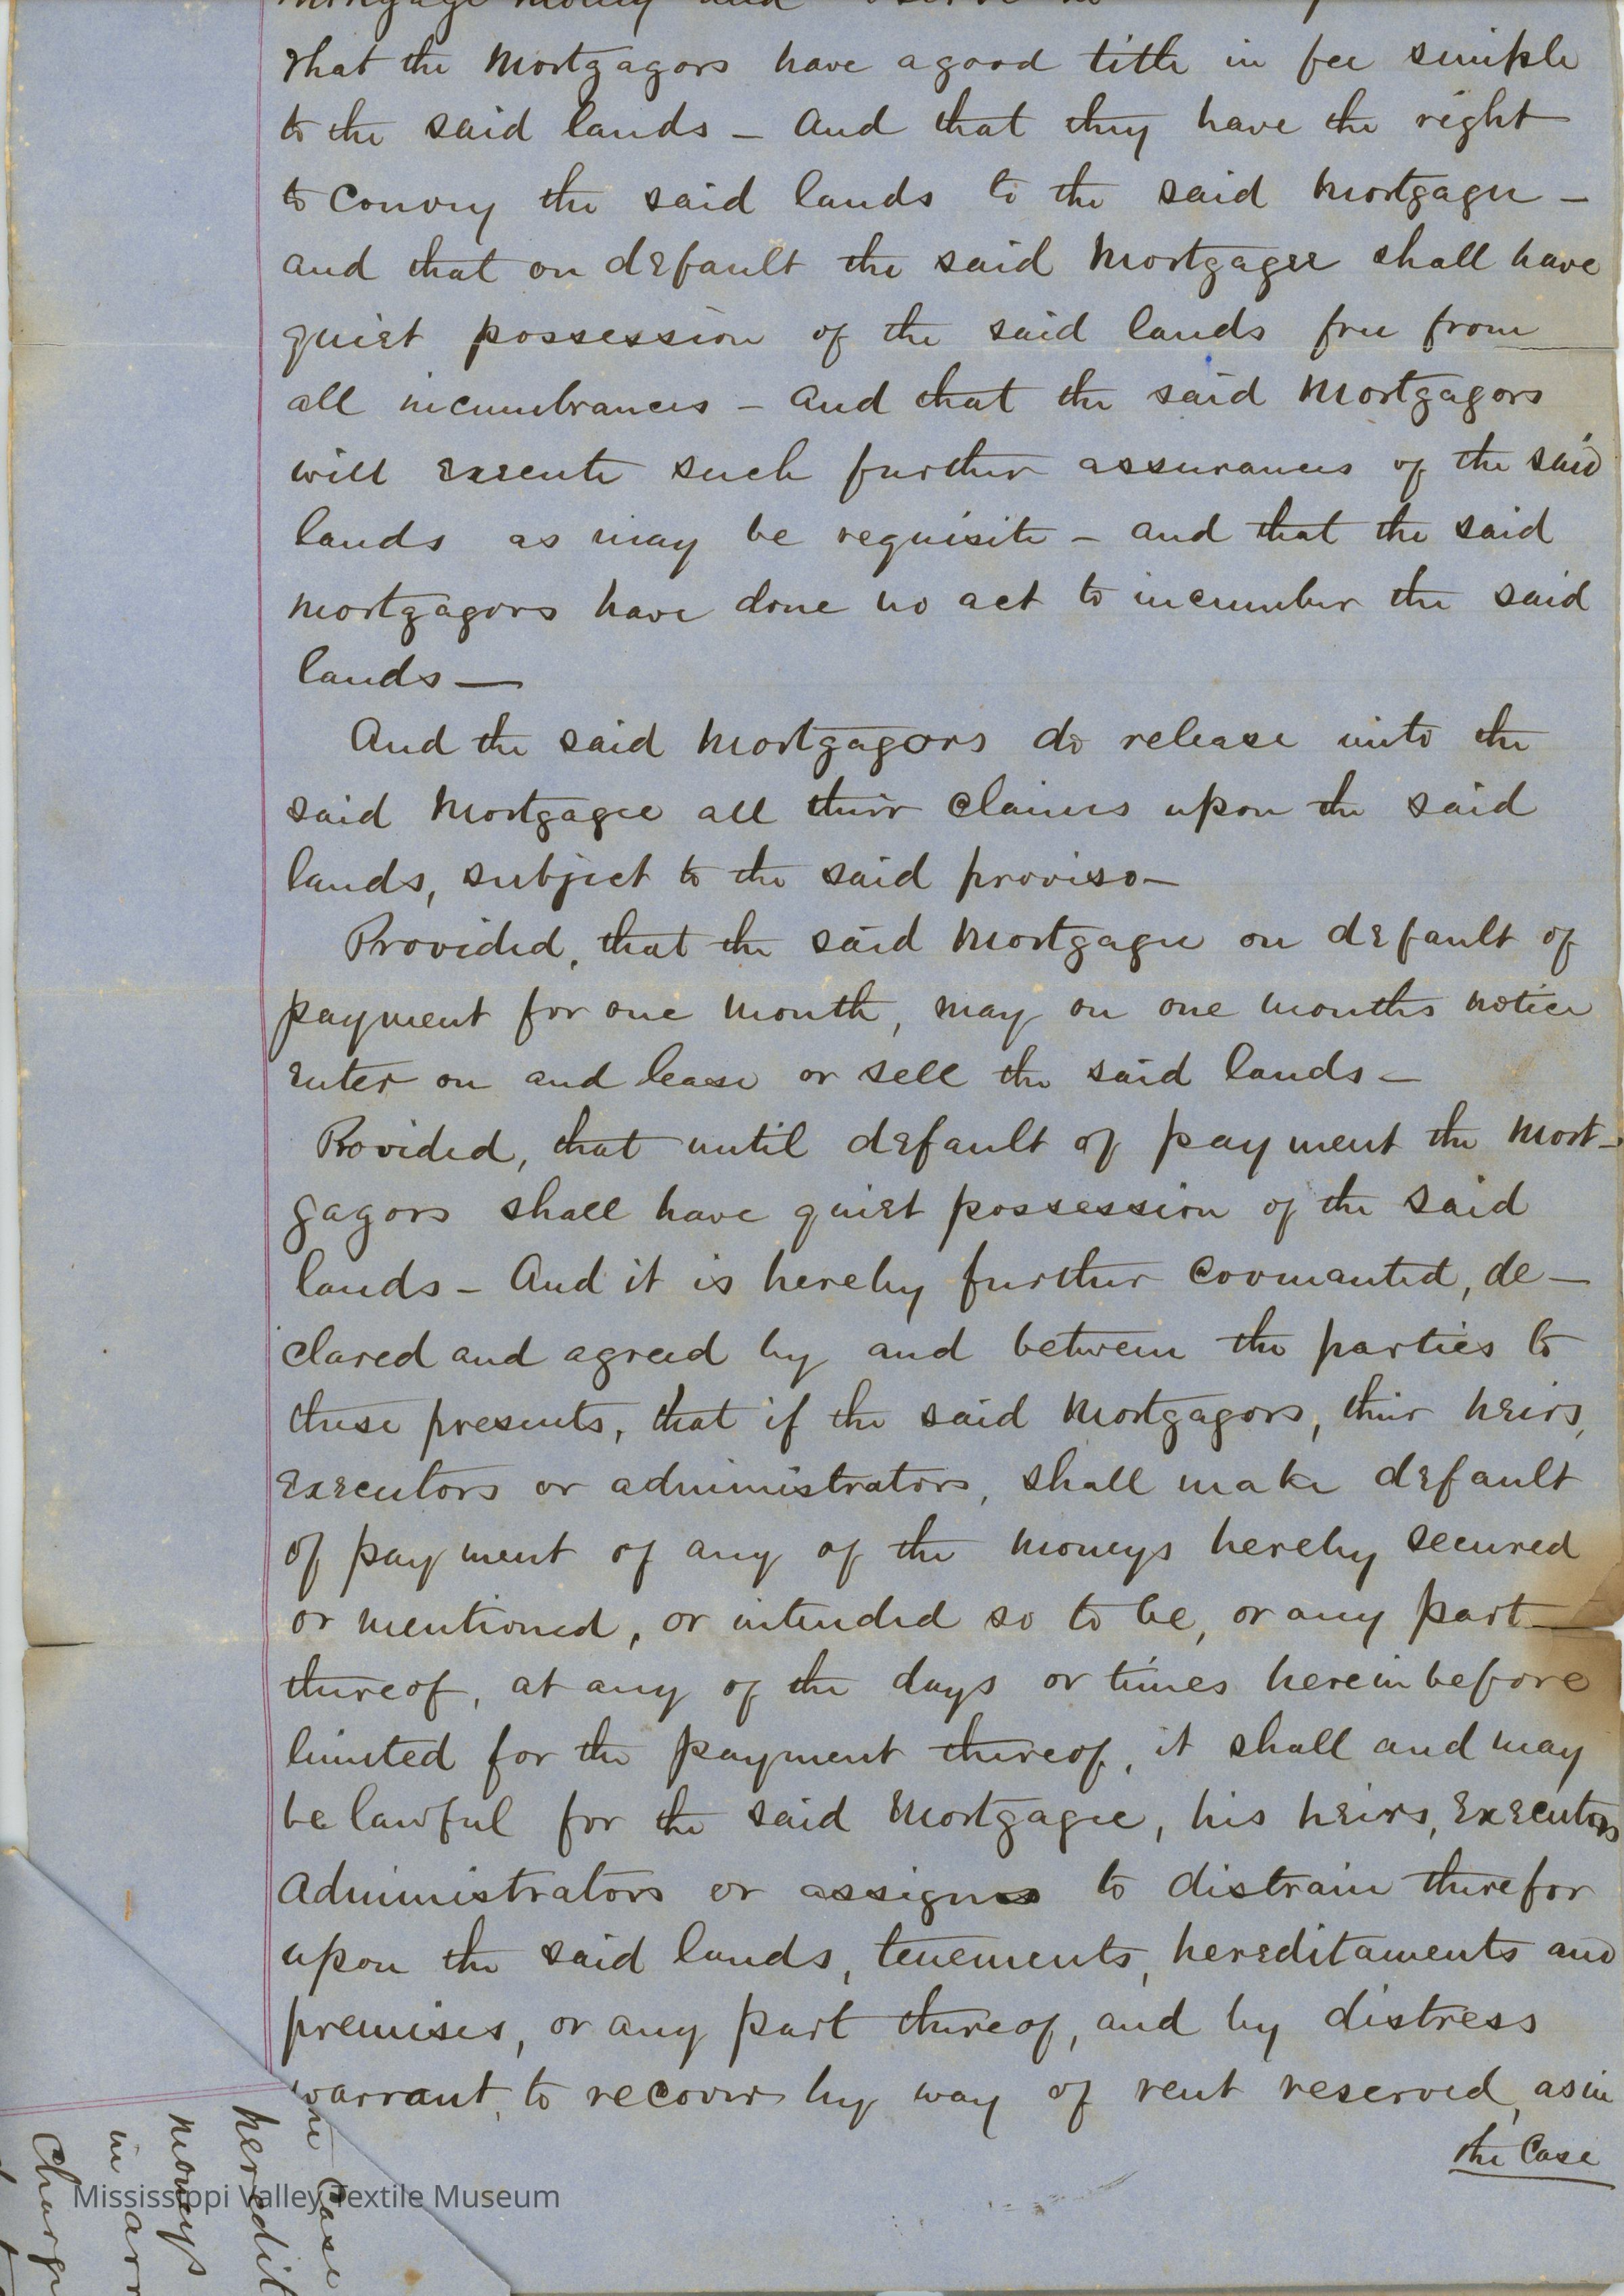 mortgage money and observe
that the Mortgagors have a good title in fee simple
to the said lands – And that they have the right
to convey the said lands to the said Mortgagee –
and that on default the said Mortgagee shall have
quiet possession of the said lands free from
all incumbrances – And that the said Mortgagors
will execute such further assurances of the said
lands as may be requisite – and that the said
Mortgagors have done no act to incumber the said
lands —
And the said Mortgagors do release unto the
said Mortgagee all their claims upon the said
lands, subject to the said proviso –
Provided, that the said Mortgagee on default of
payment for one month, may on one months notice
enter on and lease or sell the said lands –
Provided, that until default of payment the Mort-
gagors shall have quiet possession of the said
lands – And it is hereby further covenanted, de-
clared and agreed by and between the parties to
these presents, that if the said Mortgagors, their heirs,
executors or administrators, shall make default
of payment of any of the moneys hereby secured
or mentioned, or intended so to be, or any part
thereof, at any of the days or times hereinbefore
limited for the payment thereof, it shall and may
be lawful for the said Mortgagee, his heirs, executors
administrators or assigns to distrain therefor
upon the said lands, tenements, hereditaments and
premises, or any part thereof, and by distress
warrant, to recover by way of rent reserved, as in
the Case
Case
heredit
moneys
in arr
Charg
Mississippi Valley Textile Museum